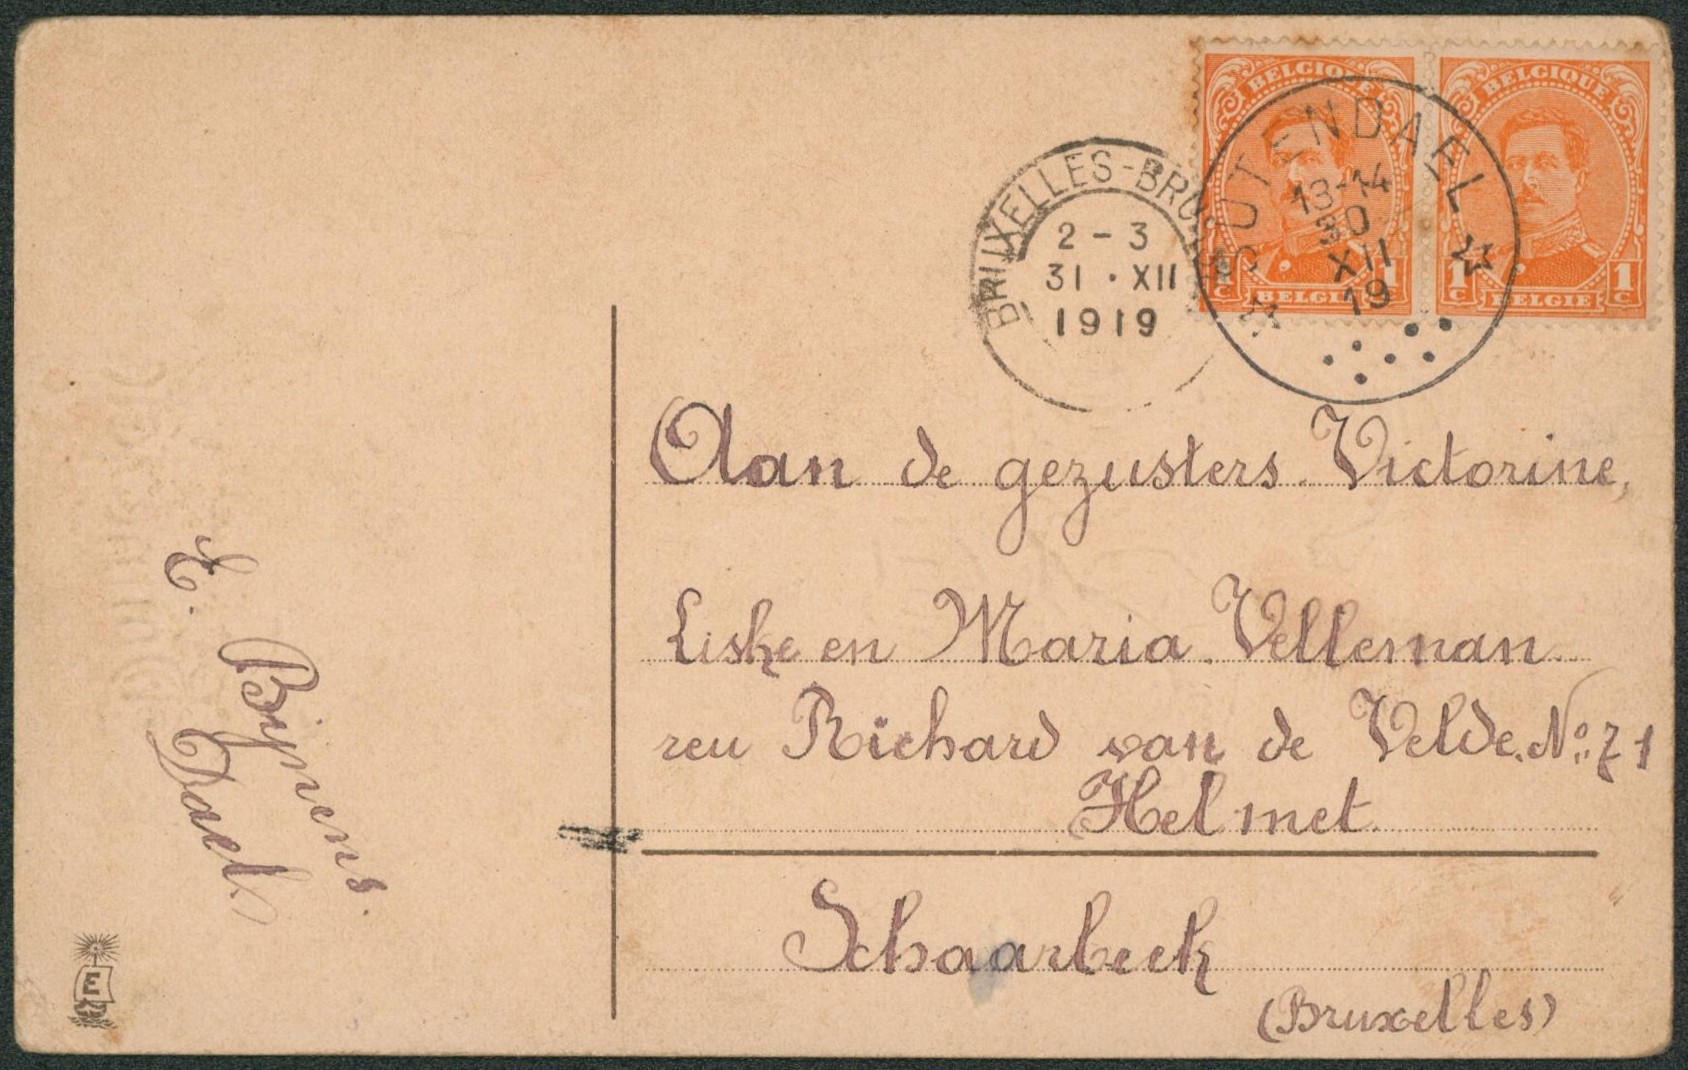 BELGIQUE
BELGIQUE
1C BELGIE 1C
1C BELGIE 1C
BRUXELLES-BRUSSEL
2-3
31 · XII
1919
SUTENDAEL
13-14
30
XII
19
Aan de gezusters Victorine,
Liske en Maria Velleman
reu Richard van de Velde. No: 71
Helmet
Schaarbeek
(Bruxelles)
E. Bijnens.
Dael
E